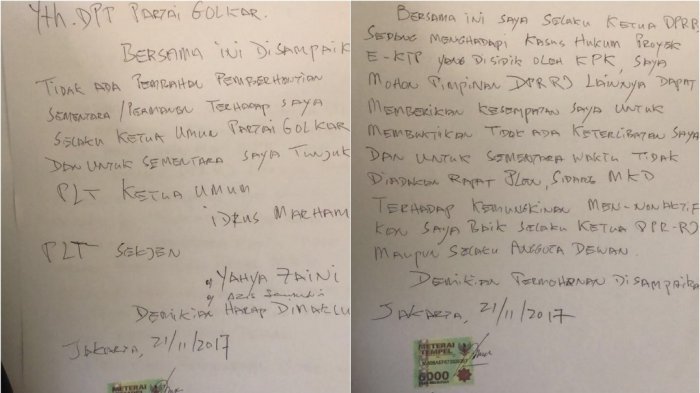 Yth. DPT PARTAI GOLKAR.
BERSAMA INI DISAMPAIK
TIDAK ADA PEMBAHASAN PEMBERHENTIAN
SEMENTARA / PERMANEN TERHADAP SAYA
SELAKU KETUA UMUM PARTAI GOLKAR
DAN UNTUK SEMENTARA SAYA TUNJUK
PLT KETUA UMUM
IDRUS MARHAM
PLT SEKJEN
YAHYA ZAINI
DEMIKIAN HARAP DIMAKLU
JAKARTA, 21/11/2017
METERAI
TEMPEL
BERSAMA INI SAYA SELAKU KETUA DPRR
SEDANG MENGHADAPI KASUS HUKUM PROYEK
E-KTP YANG DISIDIK OLEH KPK, SAYA
MOHON PIMPINAN DPR RI LAINNYA DAPAT
MEMBERIKAN KESEMPATAN SAYA UNTUK
MEMBUKTIKAN TIDAK ADA KETERLIBATAN SAYA
DAN UNTUK SEMENTARA WAKTU TIDAK
DIADAKAN RAPAT PLENO, SIDANG MKD
TERHADAP KEMUNGKINAN MEN-NONAKTIF
KAN SAYA BAIK SELAKU KETUA DPR-RI
MAUPUN SELAKU ANGGOTA DEWAN.
DEMIKIAN PERMOHONAN DISAMPAIKA
JAKARTA, 21/11/2017
METERAI
TEMPEL
6000